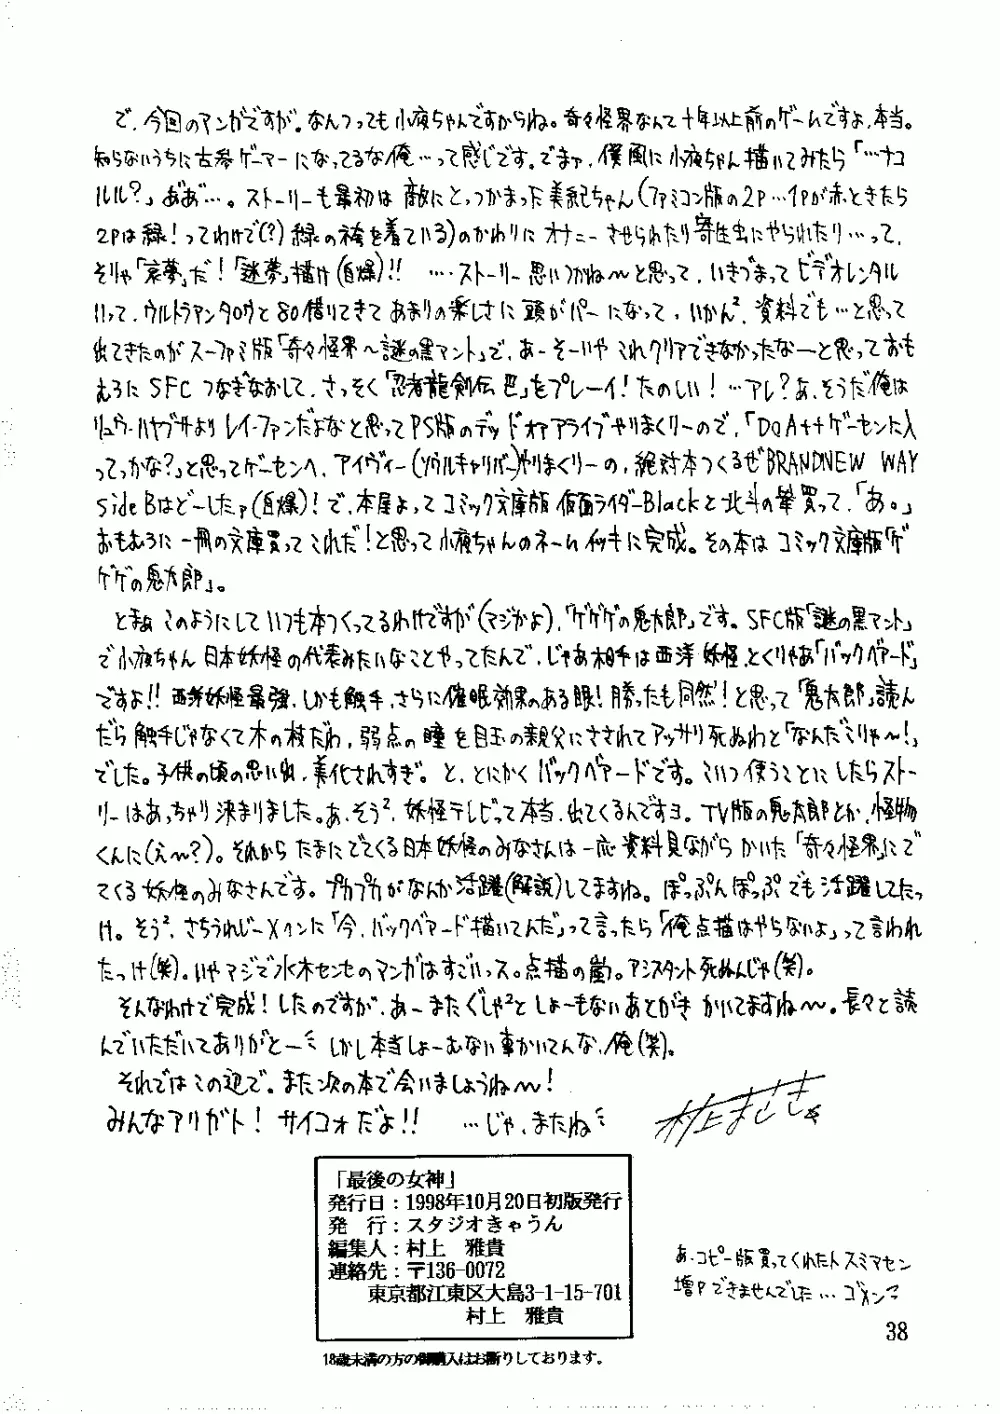 で、今回のマンガですが。なんつっても小夜ちゃんですからね。奇々怪界なんて十年以上前のゲームですよ、本当。
知らないうちに古参ゲーマーになってるな俺…って感じです。でまァ、僕風に小夜ちゃん描いてみたら「…ナコ
ルル?」ああ゛…。ストーリーも最初は敵にとっつかまった美紀ちゃん(ファミコン版の2P…1Pが赤ときたら
2Pは緑!ってわけで(?)緑の袴を着ている)のかわりにオナニーさせられたり寄生虫にやられたり…って、
そりゃ「哀夢」だ!「迷夢」描け(自爆)!! ….ストーリー思いつかね〜と思って、いきづまってビデオレンタル
いって、ウルトラマンタロウと80借りてきてあまりの楽しさに頭がパーになって、いかん²、資料でも…と思って
出てきたのがスーファミ版「奇々怪界〜謎の黒マント」で、あーそーいやこれクリアできなかったなーと思っておも
むろにSFCつなぎなおして、さっそく「忍者龍剣伝巴」をプレーイ!たのしい!…アレ?あ、そうだ俺は
リュウ・ハヤブサよりレイファンだよなと思ってPS版のデッドオアアライブやりまくりーので、「DOA++ゲーセンに入
ってっかな?」と思ってゲーセンへ、アイヴィー(ソウルキャリバー)やりまくりーの、絶対本つくるぜBRANDNEW WAY
sideBはどーしたァ(自爆)!で、本屋よってコミック文庫版仮面ライダーBlackと北斗の拳買って、「あ。」
おもむろに一冊の文庫買ってこれだ!と思って小夜ちゃんのネームイッキに完成。その本はコミック文庫版「ゲ
ゲゲの鬼太郎」。
とまぁこのようにしていつも本つくってるわけですが(マジかよ)、「ゲゲゲの鬼太郎」です。SFC版「謎の黒マント」
で小夜ちゃん日本妖怪の代表みたいなことやってたんで、じゃあ相手は西洋妖怪、とくりゃあ「バックベアード」
ですよ!!西洋妖怪最強、しかも触手、さらに催眠効果のある眼!勝ったも同然!と思って「鬼太郎」読ん
だら触手じゃなくて木の枝だわ、弱点の瞳を目玉の親父にさされてアッサリ死ぬわと「なんだこりゃ〜!」
でした。子供の頃の思い出、美化されすぎ。と、とにかくバックベアードです。こいつ使うことにしたらストー
リーはあっちゃり決まりました。あ、そう²、妖怪テレビって本当、出てくるんですヨ。TV版の鬼太郎とか、怪物
くんに(え〜?)。それからたまにでてくる日本妖怪のみなさんは一応資料見ながらかいた「奇々怪界」にで
てくる妖怪のみなさんです。プカプカがなんか活躍(解説)してますね。ぽっぷんぽっぷでも活躍してたっ
け。そう²、さちうれじーXクンに「今、バックベアード描いてんだ」って言ったら「俺点描はやらないよ」って言われ
たっけ(笑)。いやマジで水木センセのマンガはすごいっス。点描の嵐。アシスタント死ぬんじゃ(笑)。
そんなわけで完成!したのですが、あーまたぐじゃ²としょーもないあとがきかいてますね〜。長々と読
んでいただいてありがとーミしかし本当しょーむない事かいてんな、俺(笑)。
それではこの辺で。また次の本で会いましょうね〜!
みんなアリガト!サイコォだよ!! …じゃ、またねミ
村上まさき
「最後の女神」
発行日:1998年10月20日初版発行
発 行:スタジオきゃうん
編集人:村上 雅貴
連絡先:〒136-0072
東京都江東区大島3-1-15-701
村上 雅貴
18歳未満の方の御購入はお断りしております。
あ、コピー版買ってくれた人スミマセン
増Pできませんでした…ゴメン
38